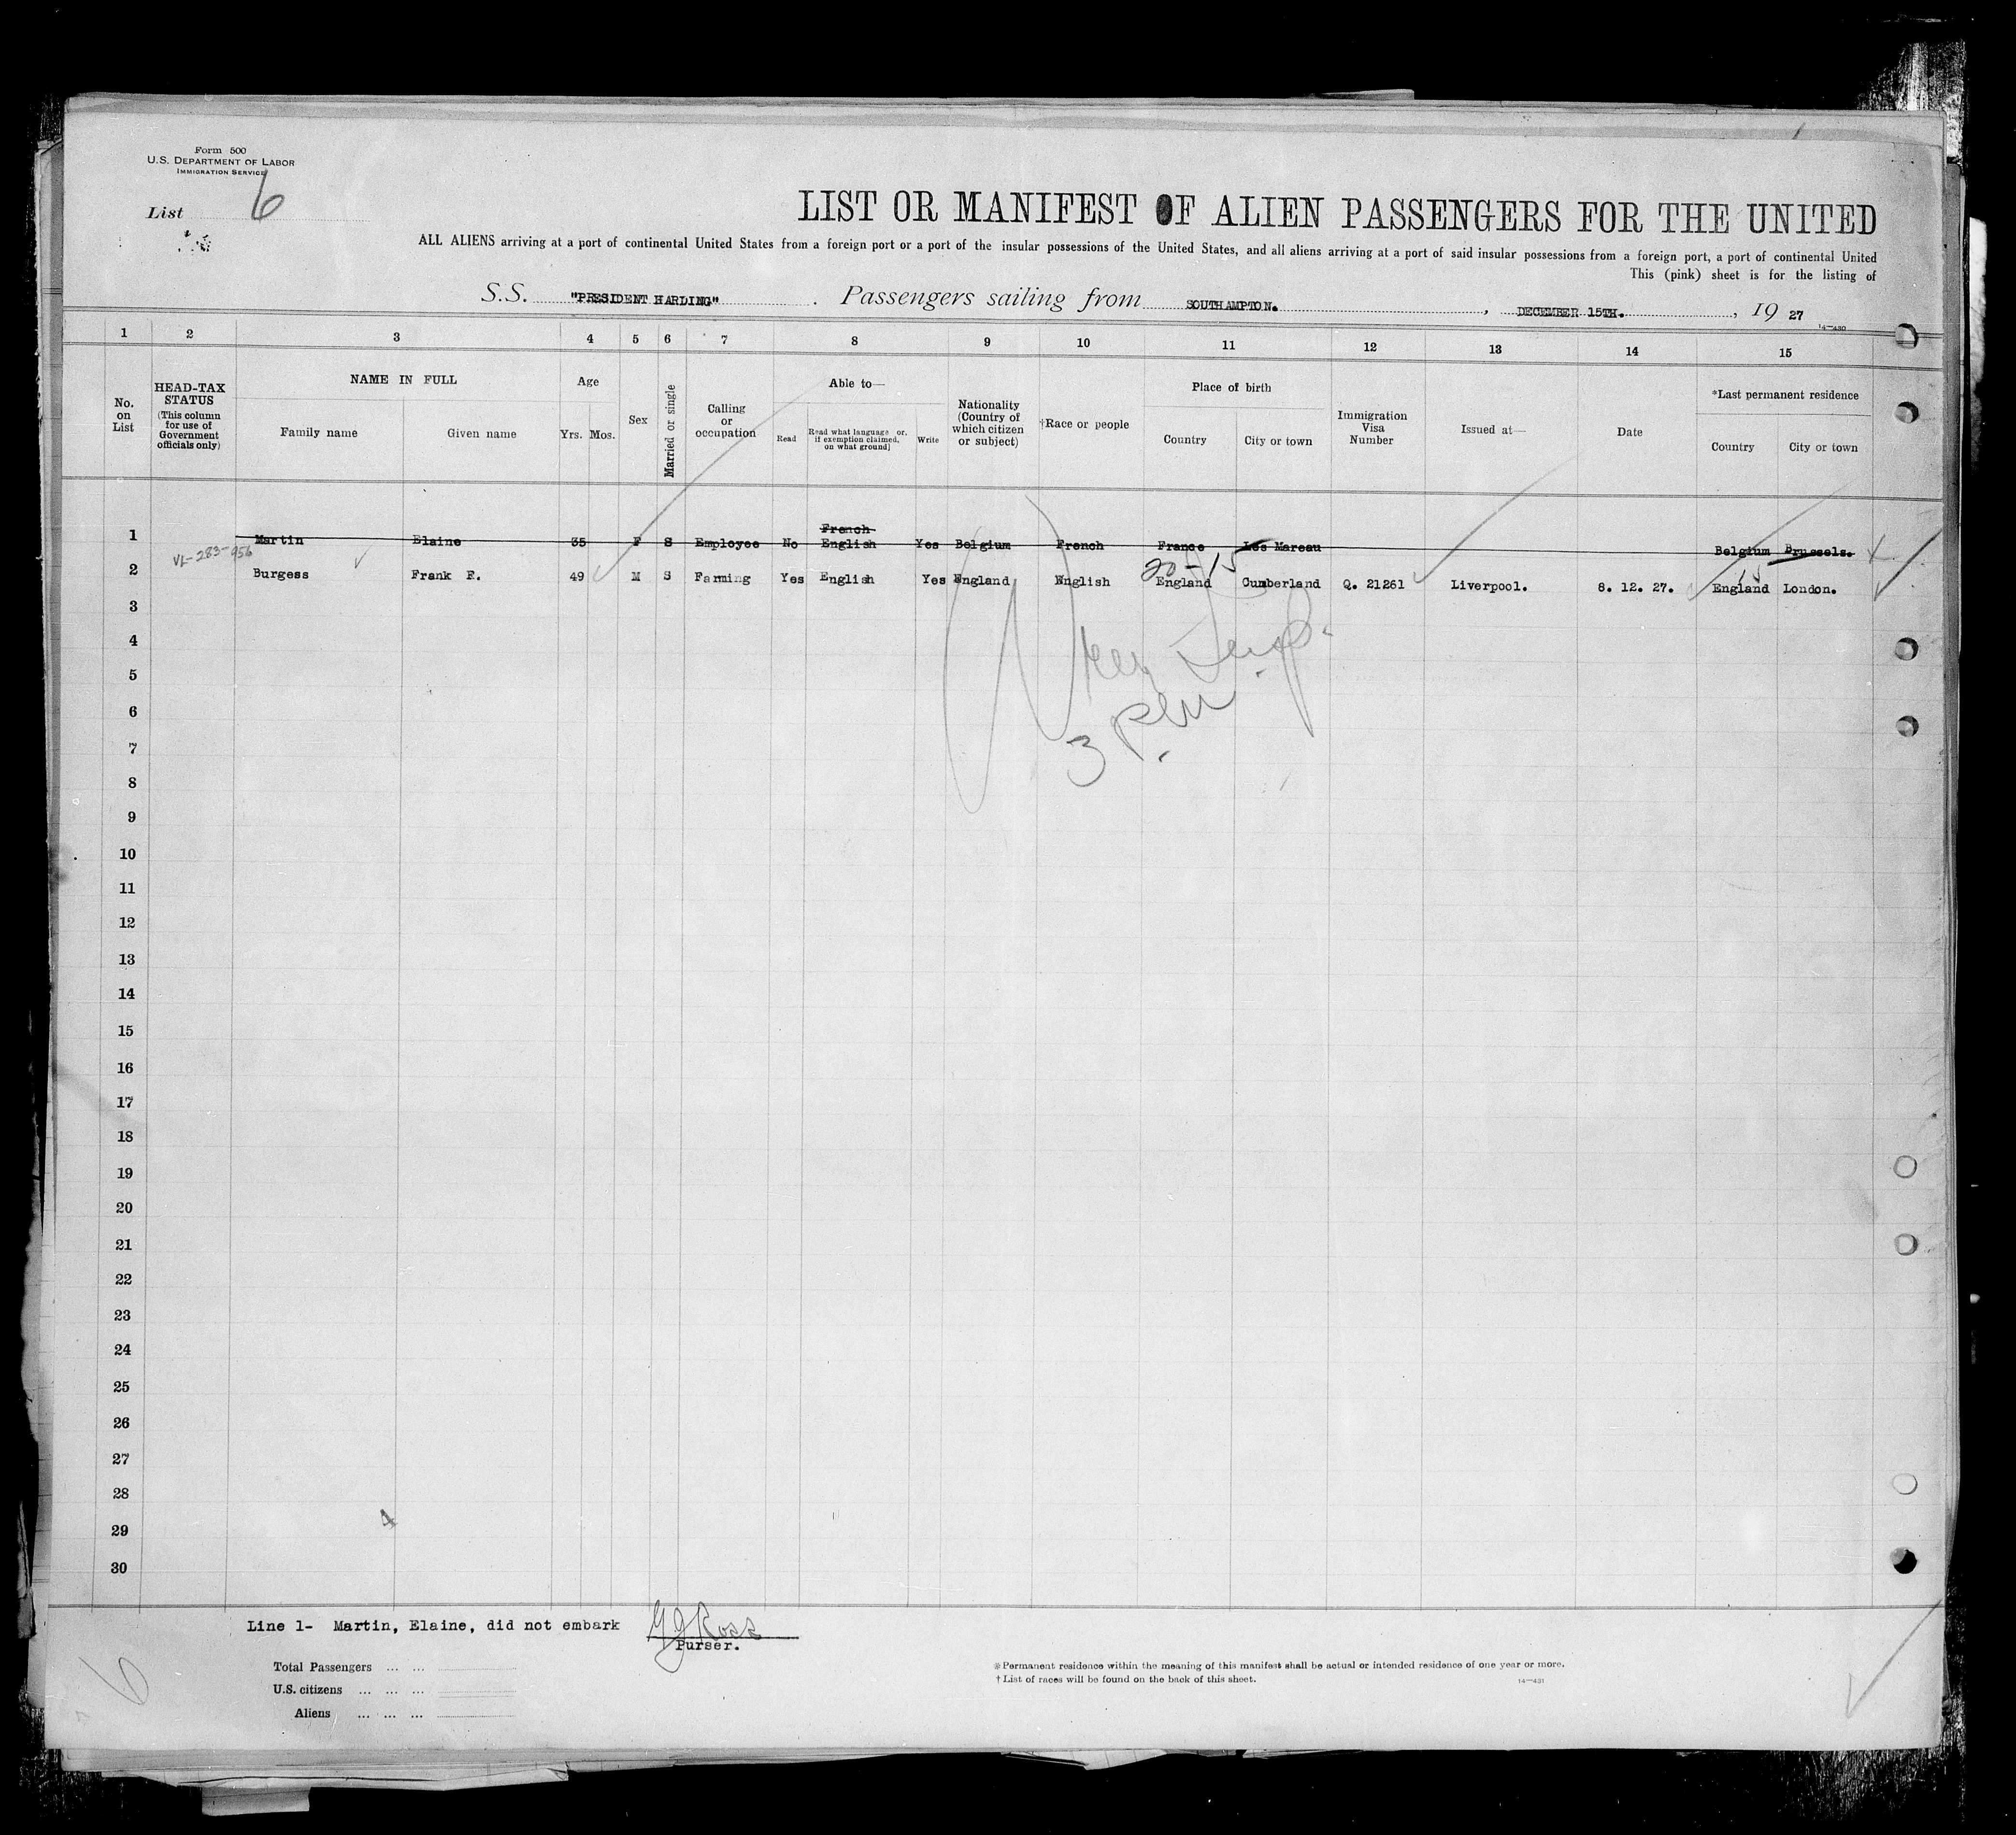 Form 500
U.S. DEPARTMENT OF LABOR
IMMIGRATION SERVICE
List 6
LIST OR MANIFEST OF ALIEN PASSENGERS FOR THE UNITED
ALL ALIENS arriving at a port of continental United States from a foreign port or a port of the insular possessions of the United States, and all aliens arriving at a port of said insular possessions from a foreign port, a port of continental United
This (pink) sheet is for the listing of
S.S. "PRESIDENT HARDING" . Passengers sailing from SOUTHAMPTON. , DECEMBER 15TH. , 19 27
14—430
1 2 3 4 5 6 7 8 9 10 11 12 13 14 15
No. on List
HEAD-TAX STATUS (This column for use of Government officials only)
NAME IN FULL
Family name
Given name
Age
Yrs. Mos.
Sex
Married or single
Calling or occupation
Able to—
Read
Read what language or, if exemption claimed, on what ground]
Write
Nationality (Country of which citizen or subject)
†Race or people
Place of birth
Country
City or town
Immigration Visa Number
Issued at—
Date
*Last permanent residence
Country
City or town
French
1 Martin Elaine 35 F S Employee No English Yes Belgium French France Les Mareau Belgium Brussels.
VL-283-956
20-15
15
2 Burgess Frank E. 49 M S Farming Yes English Yes England English England Cumberland Q. 21261 Liverpool. 8. 12. 27. England London.
3
4
5
6
7
3
8
9
10
11
12
13
14
15
16
17
18
19
20
21
22
23
24
25
26
27
28
29
4
30
Line 1- Martin, Elaine, did not embark
Ross
Purser.
6
Total Passengers ... ...
U.S. citizens ... ... ...
Aliens ... ... ...
*Permanent residence within the meaning of this manifest shall be actual or intended residence of one year or more.
†List of races will be found on the back of this sheet.
14—431